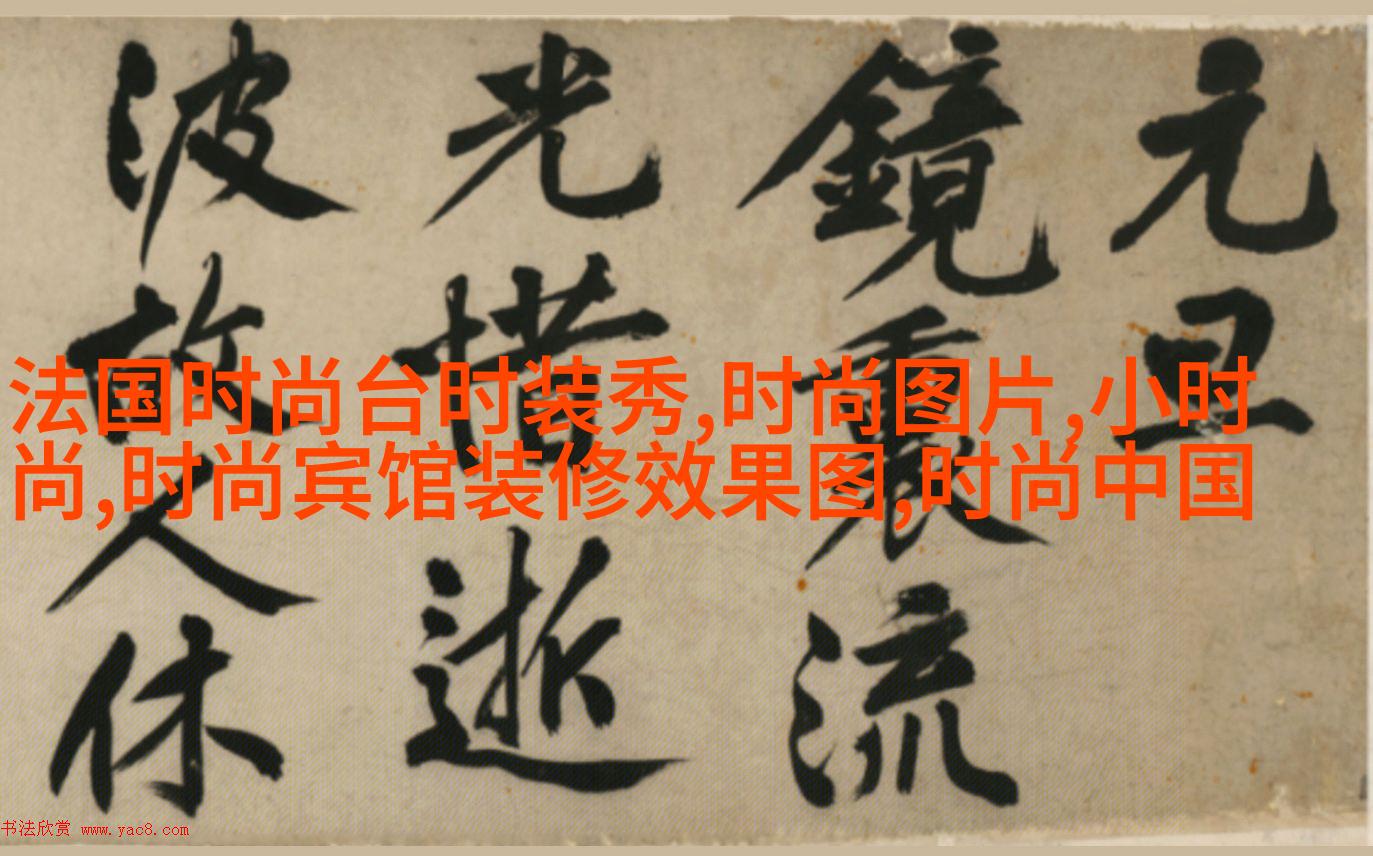 元旦
鏡裏流
光惜逝
波故人休
法国时尚台时装秀,时尚图片,小时
尚,时尚宾馆装修效果图,时尚中国
书法欣赏 www.yac8.com